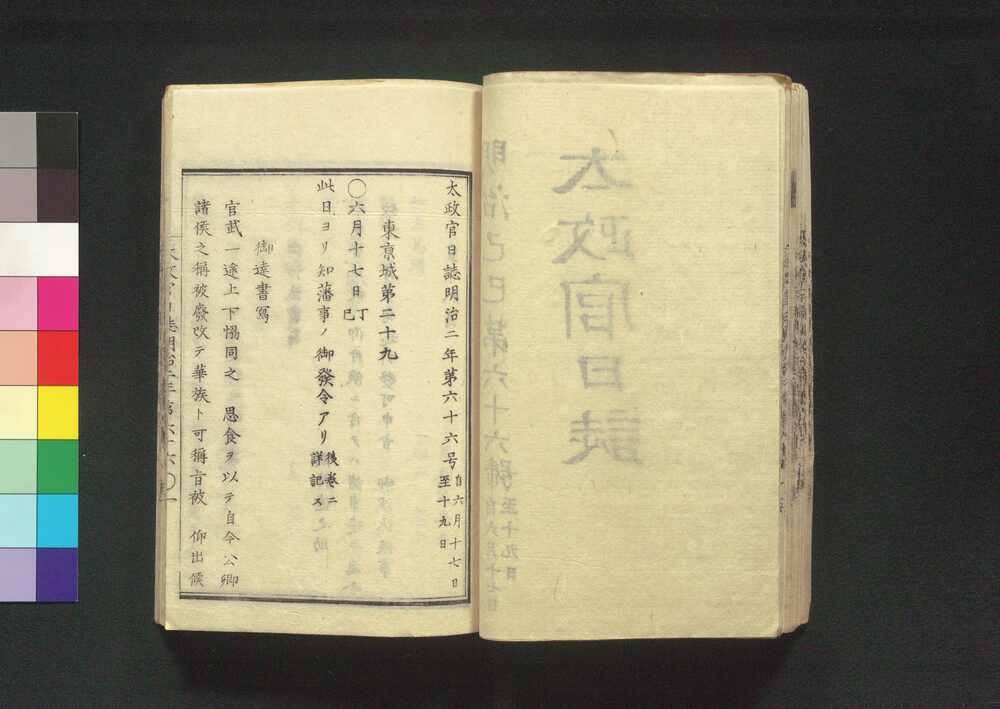 太政官日誌
明治己巳第六十六號
自六月十七日
至十九日
太政官日誌明治二年第六十六号
自六月十七日
至十九日
東亰城第二十九
〇六月十七日丁巳
此日ヨリ知藩事ノ御發令アリ後卷ニ詳記ス
御達書寫
官武一途上下協同之思食ヲ以テ自今公卿
諸侯之稱被廢改テ華族ト可稱旨被仰出候
太政官日誌明治二年第六十六〇一